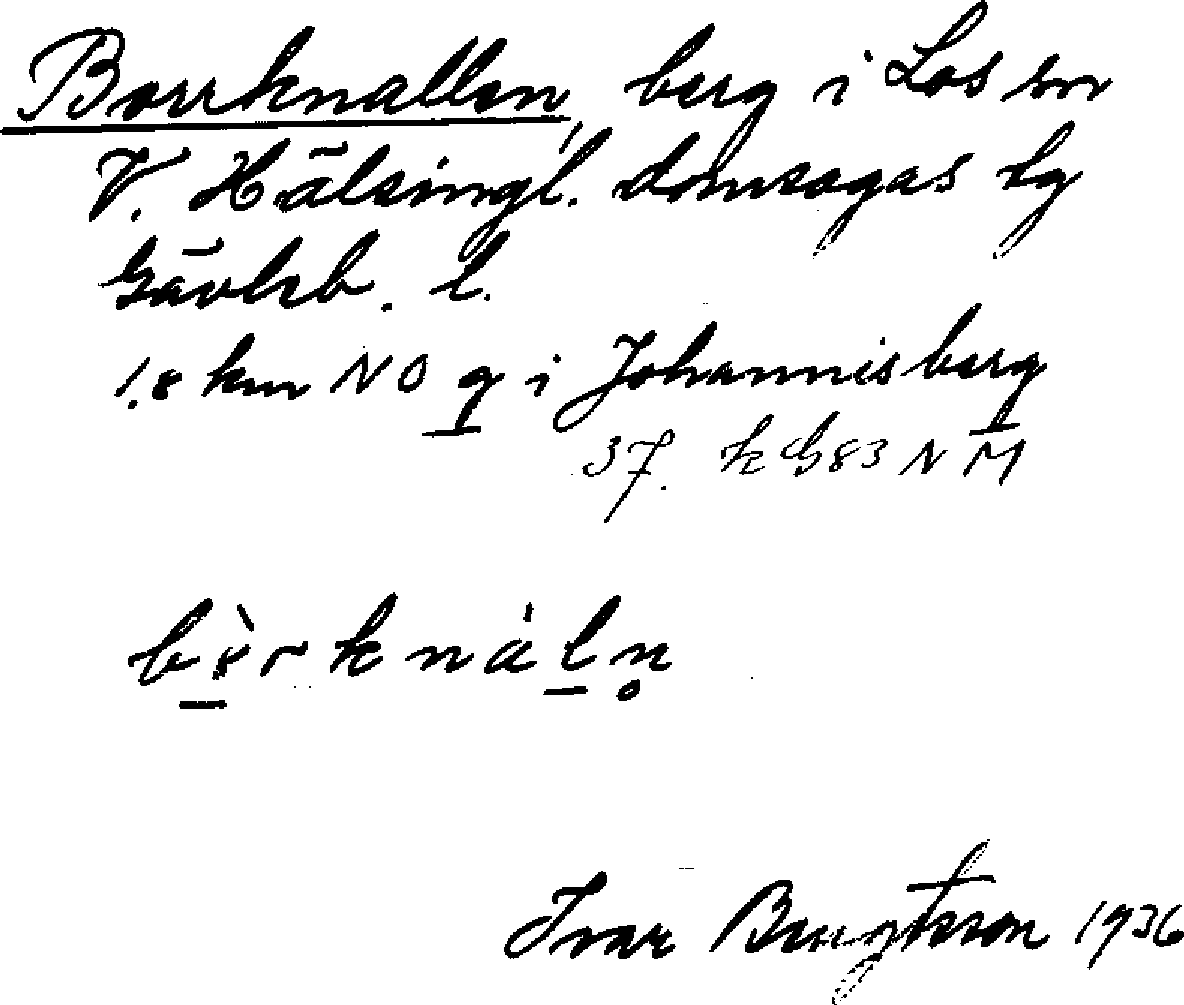 Borrknallen, berg i Los sn
V. Hälsingl. domsagas tg
Gävleb. l.
1.8 km NO g i Johannisberg
37. k G83 NM
bòrknáln̥
Ivar Bengtsson 1936